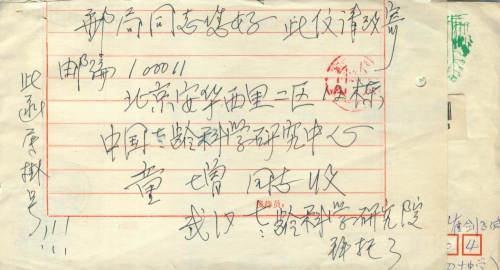 邮局同志您好 此仪请改寄
邮编100011
北京安华西里二区 栋
中国老龄科学研究中心
童增同志收
武汉老龄科学研究院
拜托了
此函虎掛号!!!
4